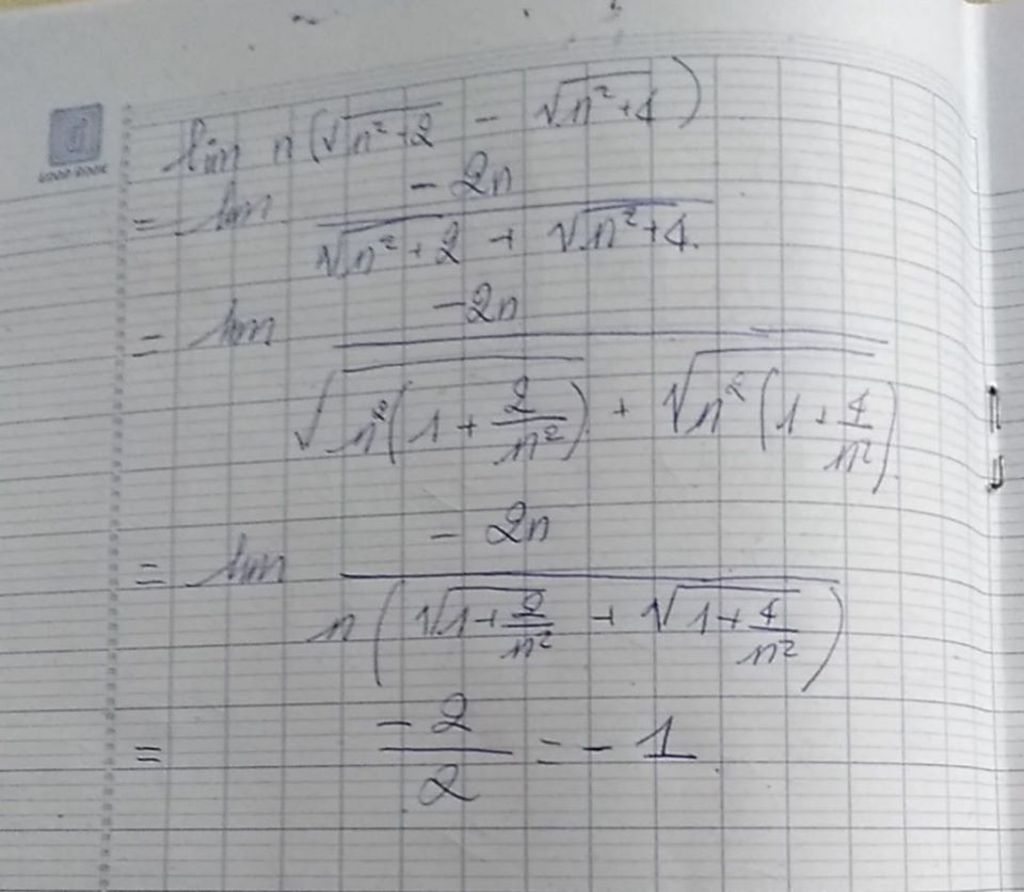 lim n(√(n²+2) - √(n²+4))
= lim (-2n)/(√(n²+2) + √(n²+4))
= lim (-2n)/(√(n²(1+2/n²)) + √(n²(1+4/n²)))
= lim (-2n)/(n(√(1+2/n²) + √(1+4/n²)))
= -2/2 = -1